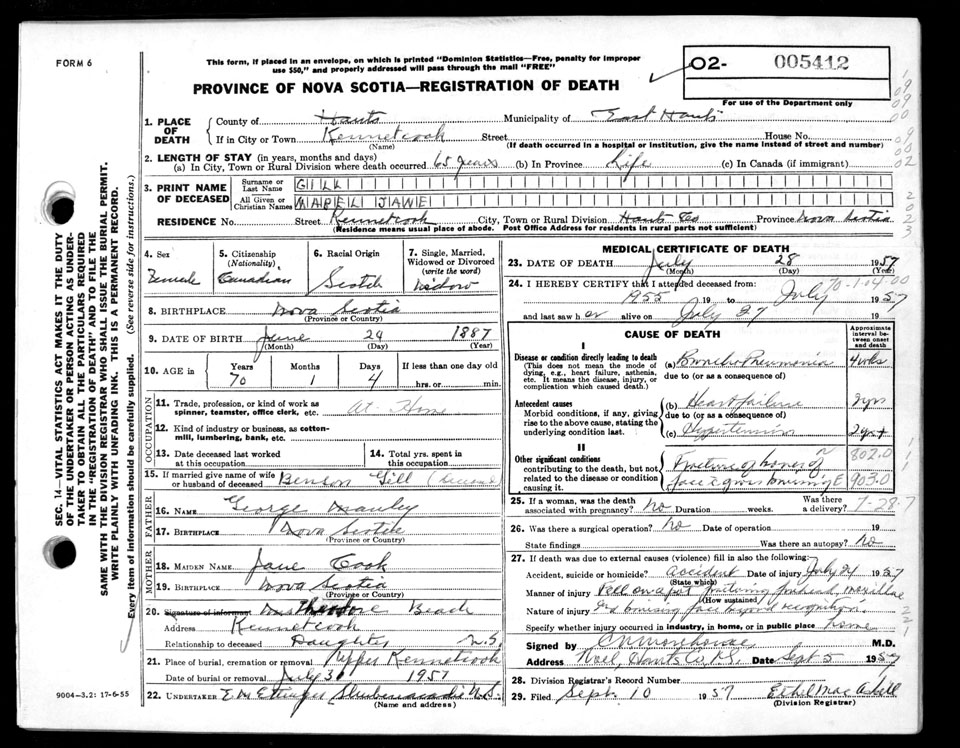 FORM 6
This form, if placed in an envelope, on which is printed "Dominion Statistics—Free, penalty for improper
use $50," and properly addressed will pass through the mail "FREE"
PROVINCE OF NOVA SCOTIA—REGISTRATION OF DEATH
O2- 005412
For use of the Department only
1. PLACE OF DEATH
County of Hants Municipality of East Hants
If in City or Town Kennetcook Street House No.
(Name) (If death occurred in a hospital or institution, give the name instead of street and number)
2. LENGTH OF STAY (in years, months and days)
(a) In City, Town or Rural Division where death occurred 65 years (b) In Province Life (c) In Canada (if immigrant)
3. PRINT NAME OF DECEASED
Surname or Last Name GILL
All Given or Christian Names MABEL JANE
RESIDENCE No. Street Kennetcook City, Town or Rural Division Hants Co Province Nova Scotia
(Residence means usual place of abode. Post Office Address for residents in rural parts not sufficient)
4. Sex Female
5. Citizenship (Nationality) Canadian
6. Racial Origin Scotch
7. Single, Married, Widowed or Divorced (write the word) Widow
8. BIRTHPLACE Nova Scotia
(Province or Country)
9. DATE OF BIRTH June 24 1887
(Month) (Day) (Year)
10. AGE in Years 70 Months 1 Days 4 If less than one day old
hrs. or min.
OCCUPATION
11. Trade, profession, or kind of work as spinner, teamster, office clerk, etc. At Home
12. Kind of industry or business, as cotton-mill, lumbering, bank, etc.
13. Date deceased last worked at this occupation
14. Total yrs. spent in this occupation
15. If married give name of wife or husband of deceased Benson Gill
FATHER
16. NAME George
17. BIRTHPLACE Nova Scotia
(Province or Country)
MOTHER
18. MAIDEN NAME Jane Cook
19. BIRTHPLACE Nova Scotia
(Province or Country)
20. Signature of informant Mrs Theodore Beach
Address Kennetcook
Relationship to deceased Daughter N.S.
21. Place of burial, cremation or removal Upper Kennetcook
Date of burial or removal July 30 1957
22. UNDERTAKER E M Ettinger Shubenacadie N.S.
(Name and address)
9004-3.2: 17-6-55
MEDICAL CERTIFICATE OF DEATH
23. DATE OF DEATH July 28 1957
(Month) (Day) (Year)
24. I HEREBY CERTIFY that I attended deceased from
1955 19 to July 1957
and last saw her alive on July 27 19
CAUSE OF DEATH
Approximate interval between onset and death
I
Disease or condition directly leading to death
(This does not mean the mode of dying, e.g., heart failure, asthenia, etc. It means the disease, injury, or complication which caused death.)
(a) Broncho Pneumonia 4 wks
due to (or as a consequence of)
Antecedent causes
Morbid conditions, if any, giving rise to the above cause, stating the underlying condition last.
(b) Heart failure 2 yrs
due to (or as a consequence of)
(c) Hypertension 2 yrs+
II
Other significant conditions
contributing to the death, but not related to the disease or condition causing it.
Fracture of bones of
face
802.0
E 903.0
25. If a woman, was the death associated with pregnancy? No Duration weeks. Was there a delivery?
26. Was there a surgical operation? No Date of operation 19
State findings Was there an autopsy? No
27. If death was due to external causes (violence) fill in also the following:
Accident, suicide or homicide? accident Date of injury July 1957
(State which)
Manner of injury Fell fracturing forehead, maxillae
(How sustained)
Nature of injury bruising face beyond recognition
Specify whether injury occurred in industry, in home, or in public place home
Signed by Morehouse M.D.
Address Noel, Hants Co. N.S. Date Sept 5 1957
28. Division Registrar's Record Number
29. Filed Sept. 10 1957 Ethel Mac
(Division Registrar)
SEC. 14—VITAL STATISTICS ACT MAKES IT THE DUTY
OF THE UNDERTAKER OR PERSON ACTING AS UNDER-
TAKER TO OBTAIN ALL THE PARTICULARS REQUIRED
IN THE "REGISTRATION OF DEATH" AND TO FILE THE
SAME WITH THE DIVISION REGISTRAR WHO SHALL ISSUE THE BURIAL PERMIT.
WRITE PLAINLY WITH UNFADING INK. THIS IS A PERMANENT RECORD.
Every item of information should be carefully supplied. (See reverse side for instructions.)